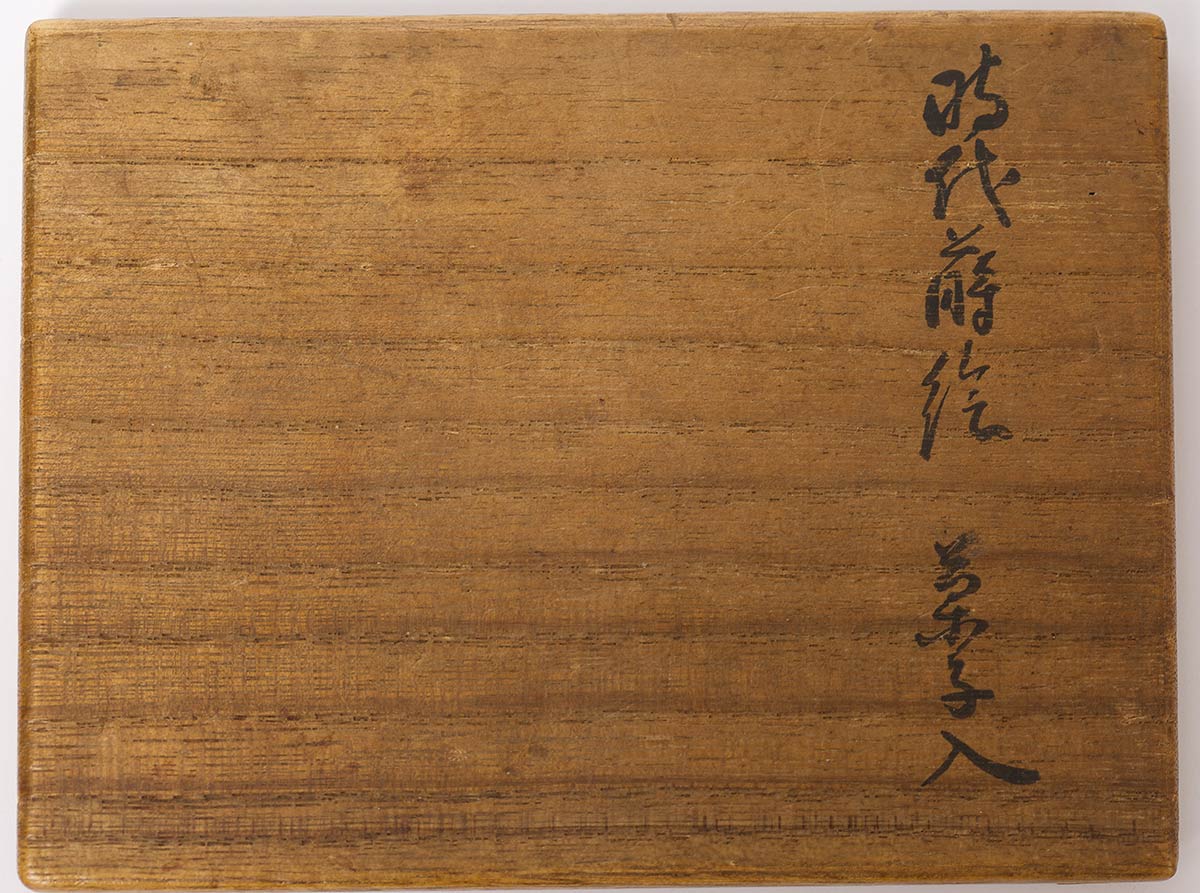 時代蒔絵 菓子入